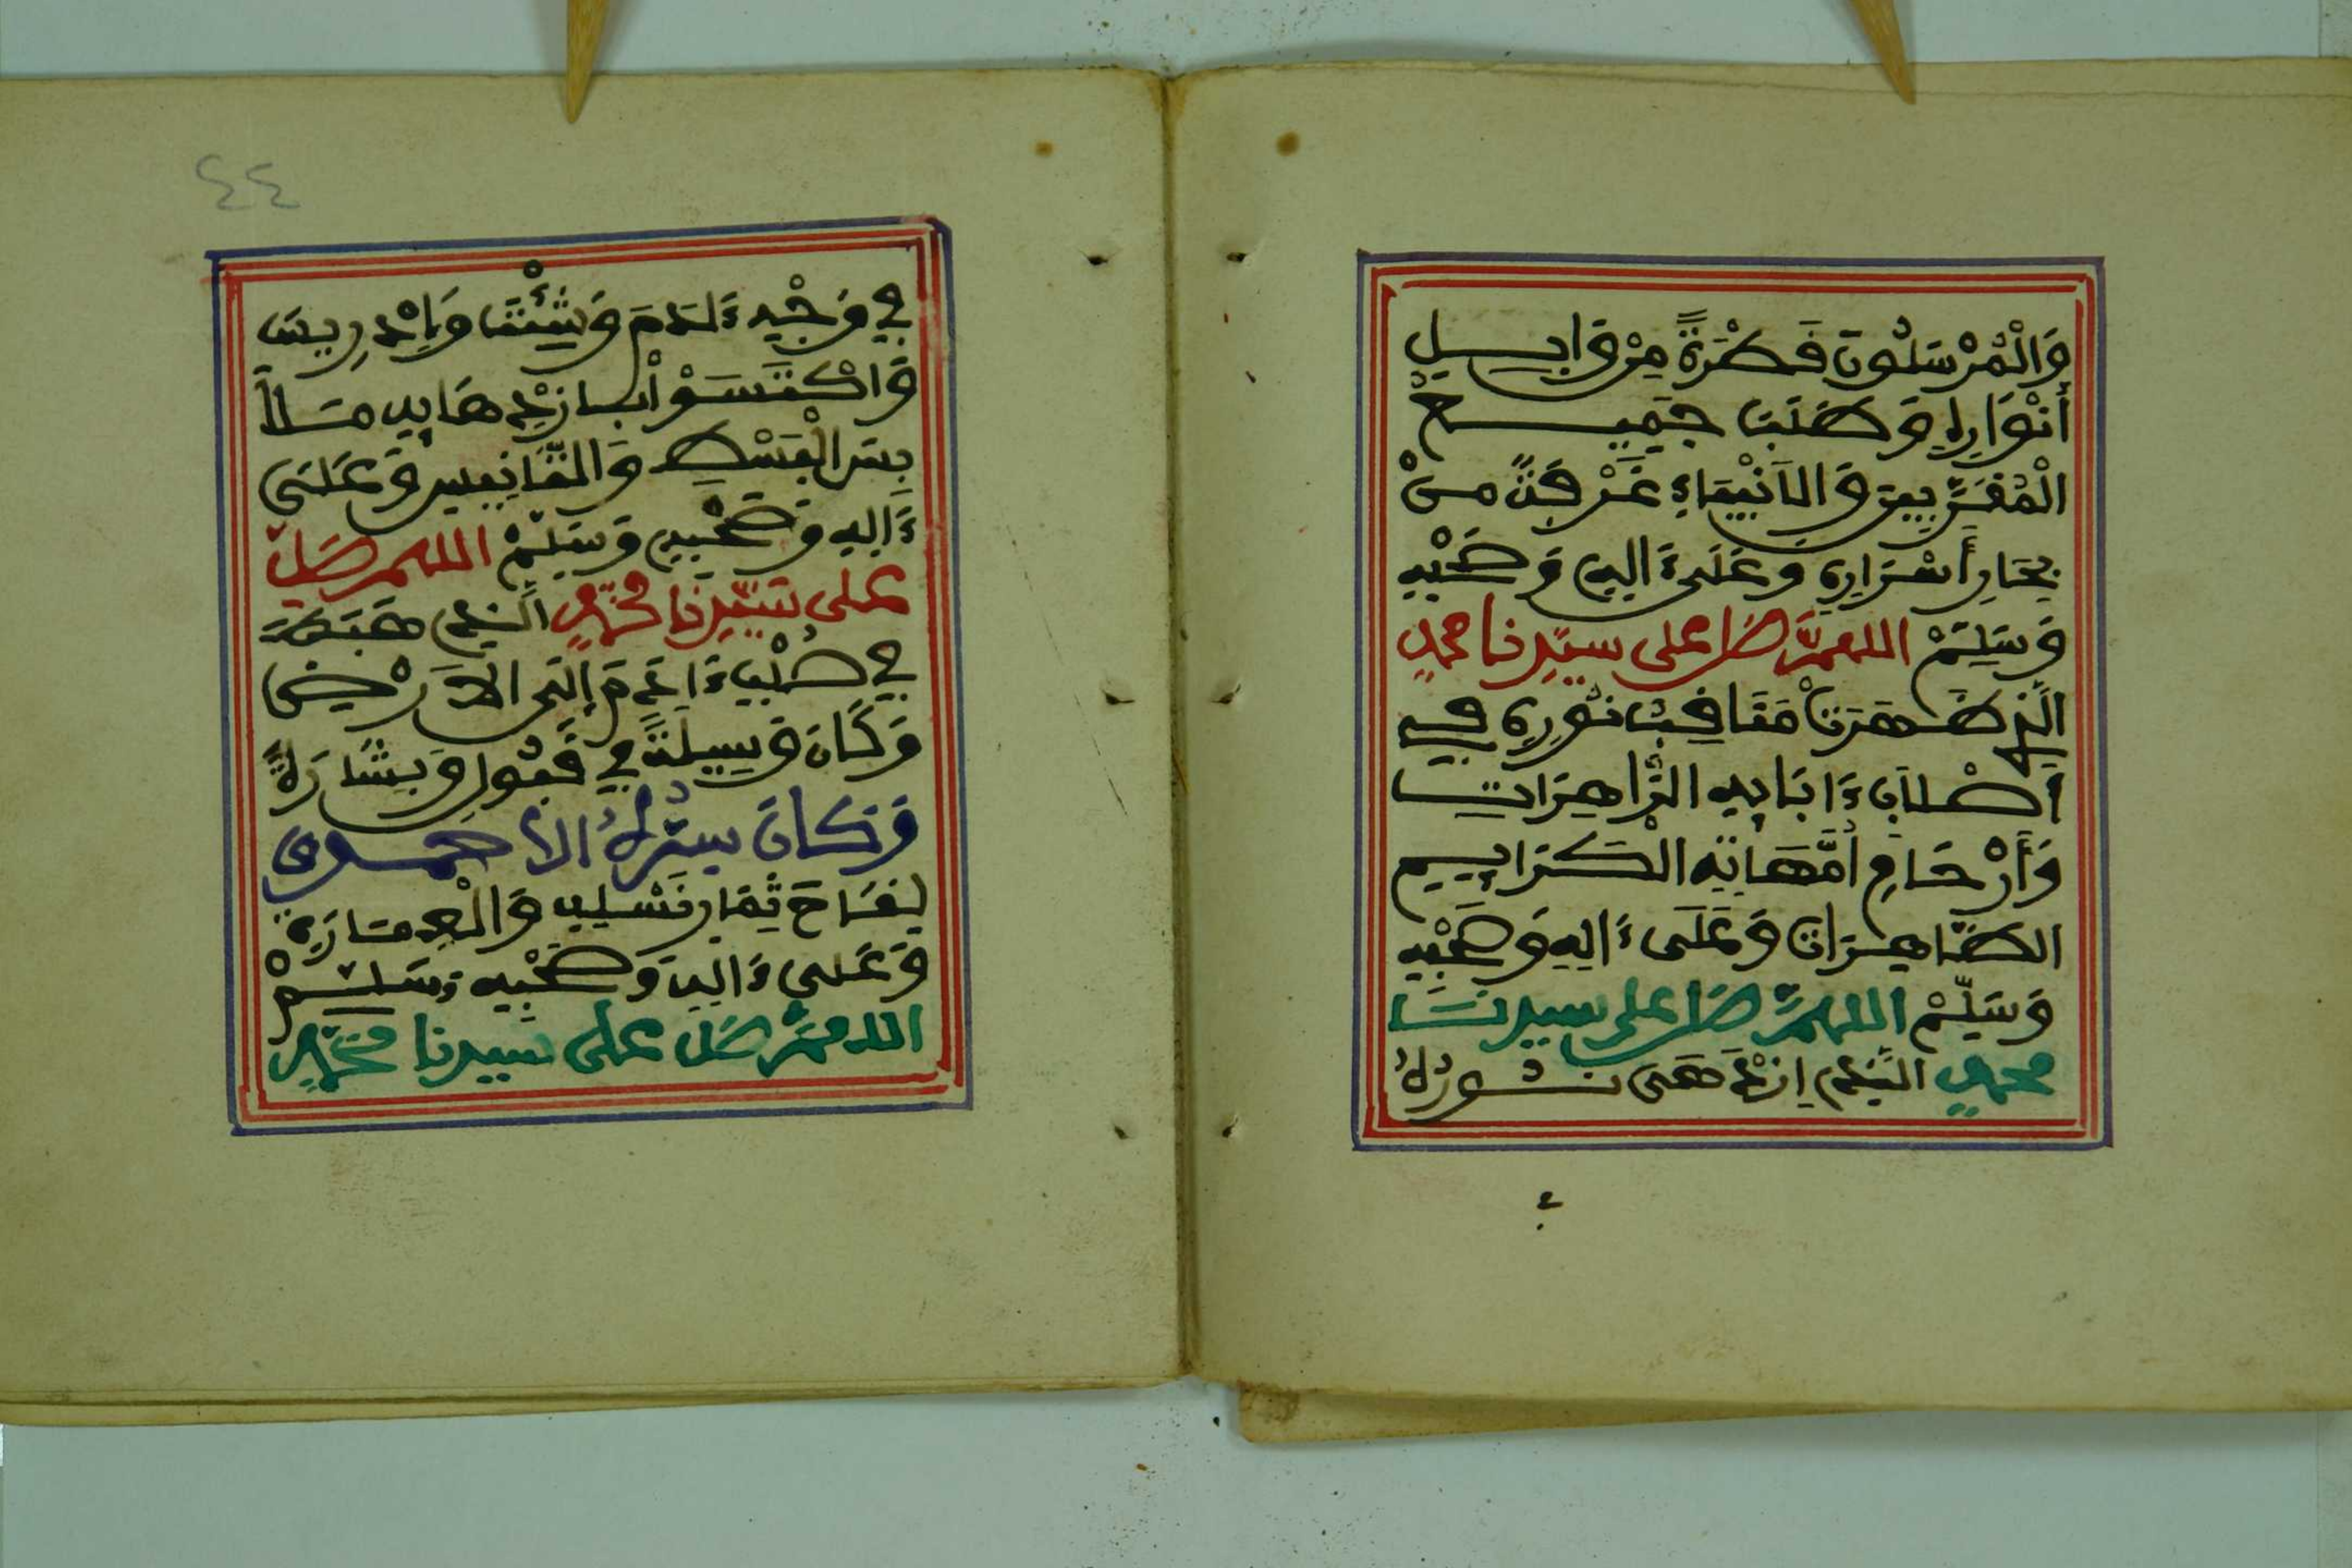 وَالْمُرْسَلُونَ قَطْرَةً مِنْ وَابِيلِ
أَنْوَارِهِ وَطَلَبَ جَمِيعُ
الْمُقَرَّبِينَ وَالأَنْبِيَاءِ غَرْفَةً مِنْ
بِحَارِ أَسْرَارِهِ وَعَلَى ءَالِهِ وَصَحْبِهِ
وَسَلِّمْ اللهمَّ صَل على سيِّدِنا محمدٍ
الَّذِي ظَهَرَتْ مَنَاقِبُ نُورِهِ فِي
أَصْلاَبِ ءَابَابِهِ الزَّاهِرَاتِ
وَأَرْحَامِ أُمَّهَاتِهِ الْكَرَايِيمِ
الطَّاهِرَاتِ وَعَلَى ءَالِهِ وَصَحْبِهِ
وَسَلِّمْ اللهمَّ صَل على سيدنَا
محمدٍ الَّذِي ازْدَهَى نُورُهُ
٤٤
فِي وَجْهِ ءَادَمَ وَشِئْتَ وَإِدْرِيسَ
وَاكْتَسَوْا بِازْدِهَايِهِ
وَعَلَى
ءَالِهِ وَصَحْبِهِ وَسَلِّمْ اللهم صَلِّ
على سَيِّدِنَا مُحَمَّدٍ الَّذِي هَبَطَ
فِي صُلْبِ ءَادَمَ إِلَى الأَرْضِ
وَكَانَ وَسِيلَةً فِي قَبُولِ وَبِشَارَةً
وَكَانَ سِرُّهُ الأَحمدي
لِقَاحَ ثِمَارِ نَسْلِهِ وَالْعِمَارَةِ
وَعَلى ءَالِهِ وَصَحْبِهِ وَسَلِّمْ
اللهمَّ صَل على سيدنا مُحَمَّدٍ